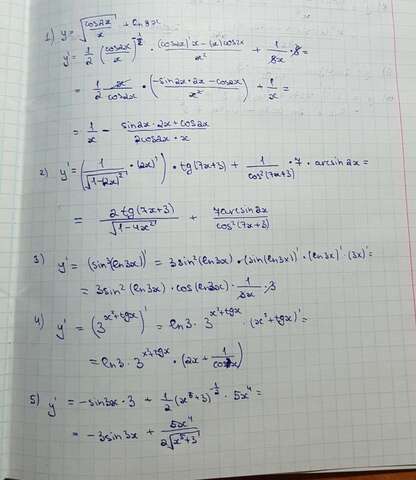 1) y = √(cos2x / x) + ln8x
y' = 1/2 (cos2x / x)^(-1/2) · ((cos2x)' x - (x)' cos2x) / x² + 1/(8x) · 8 =
= 1/2 x/cos2x · ((-sin2x · 2x - cos2x) / x²) + 1/x =
= 1/x - (sin2x · 2x + cos2x) / (2cos2x · x)
2) y' = (1/√(1-(2x)²) · (2x)') · tg(7x+3) + 1/cos²(7x+3) · 7 · arcsin2x =
= 2tg(7x+3) / √(1-4x²) + 7arcsin2x / cos²(7x+3)
3) y' = (sin³(ln3x))' = 3sin²(ln3x) · (sin(ln3x))' · (ln3x)' · (3x)' =
= 3sin²(ln3x) · cos(ln3x) · 1/(3x) · 3
4) y' = (3^(x²+tgx))' = ln3 · 3^(x²+tgx) · (x²+tgx)' =
= ln3 · 3^(x²+tgx) · (2x + 1/cos²x)
5) y' = -sin3x · 3 + 1/2 (x⁵+3)^(-1/2) · 5x⁴ =
= -3sin3x + 5x⁴ / (2√(x⁵+3))